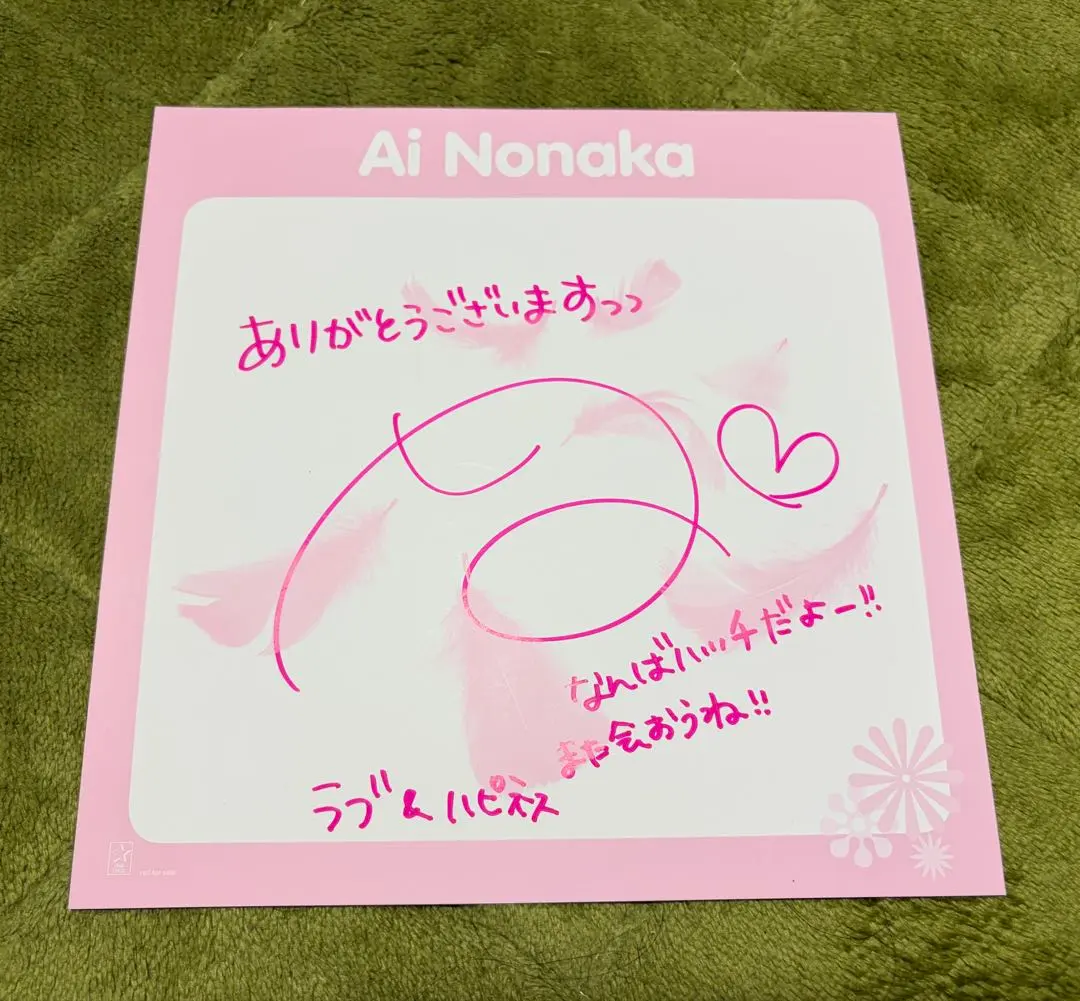 Ai Nonaka
ありがとうございますっっ
なんばハッチだよー!!
また会おうね!!
ラブ&ハピネス
not for sale